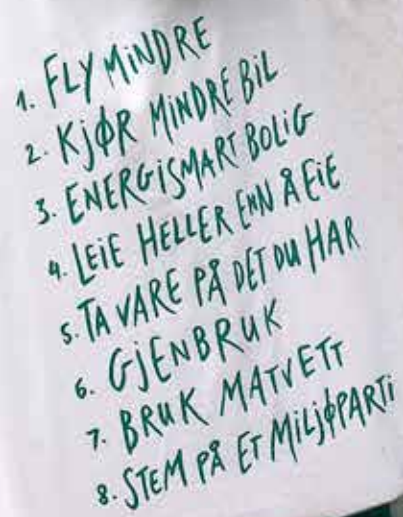 1. FLY MINDRE
2. KJØR MINDRE BIL
3. ENERGISMART BOLIG
4. LEIE HELLER ENN Å EIE
5. TA VARE PÅ DET DU HAR
6. GJENBRUK
7. BRUK MATVETT
8. STEM PÅ ET MILJØPARTI